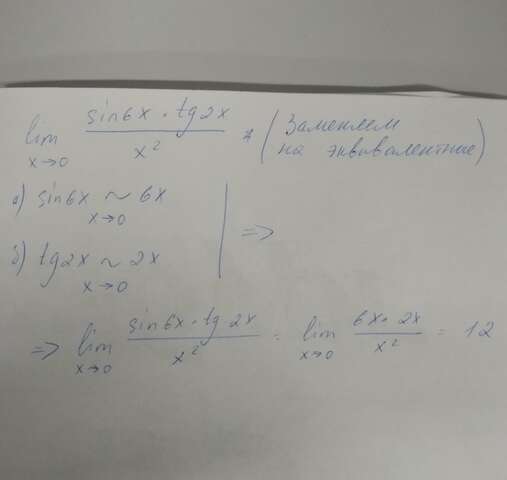 lim x→0 sin6x · tg2x / x² = (Заменяем
на эквивалентные)
а) sin6x ~ 6x
x→0
=>
б) tg2x ~ 2x
x→0
=> lim x→0 sin6x · tg2x / x² = lim x→0 6x · 2x / x² = 12